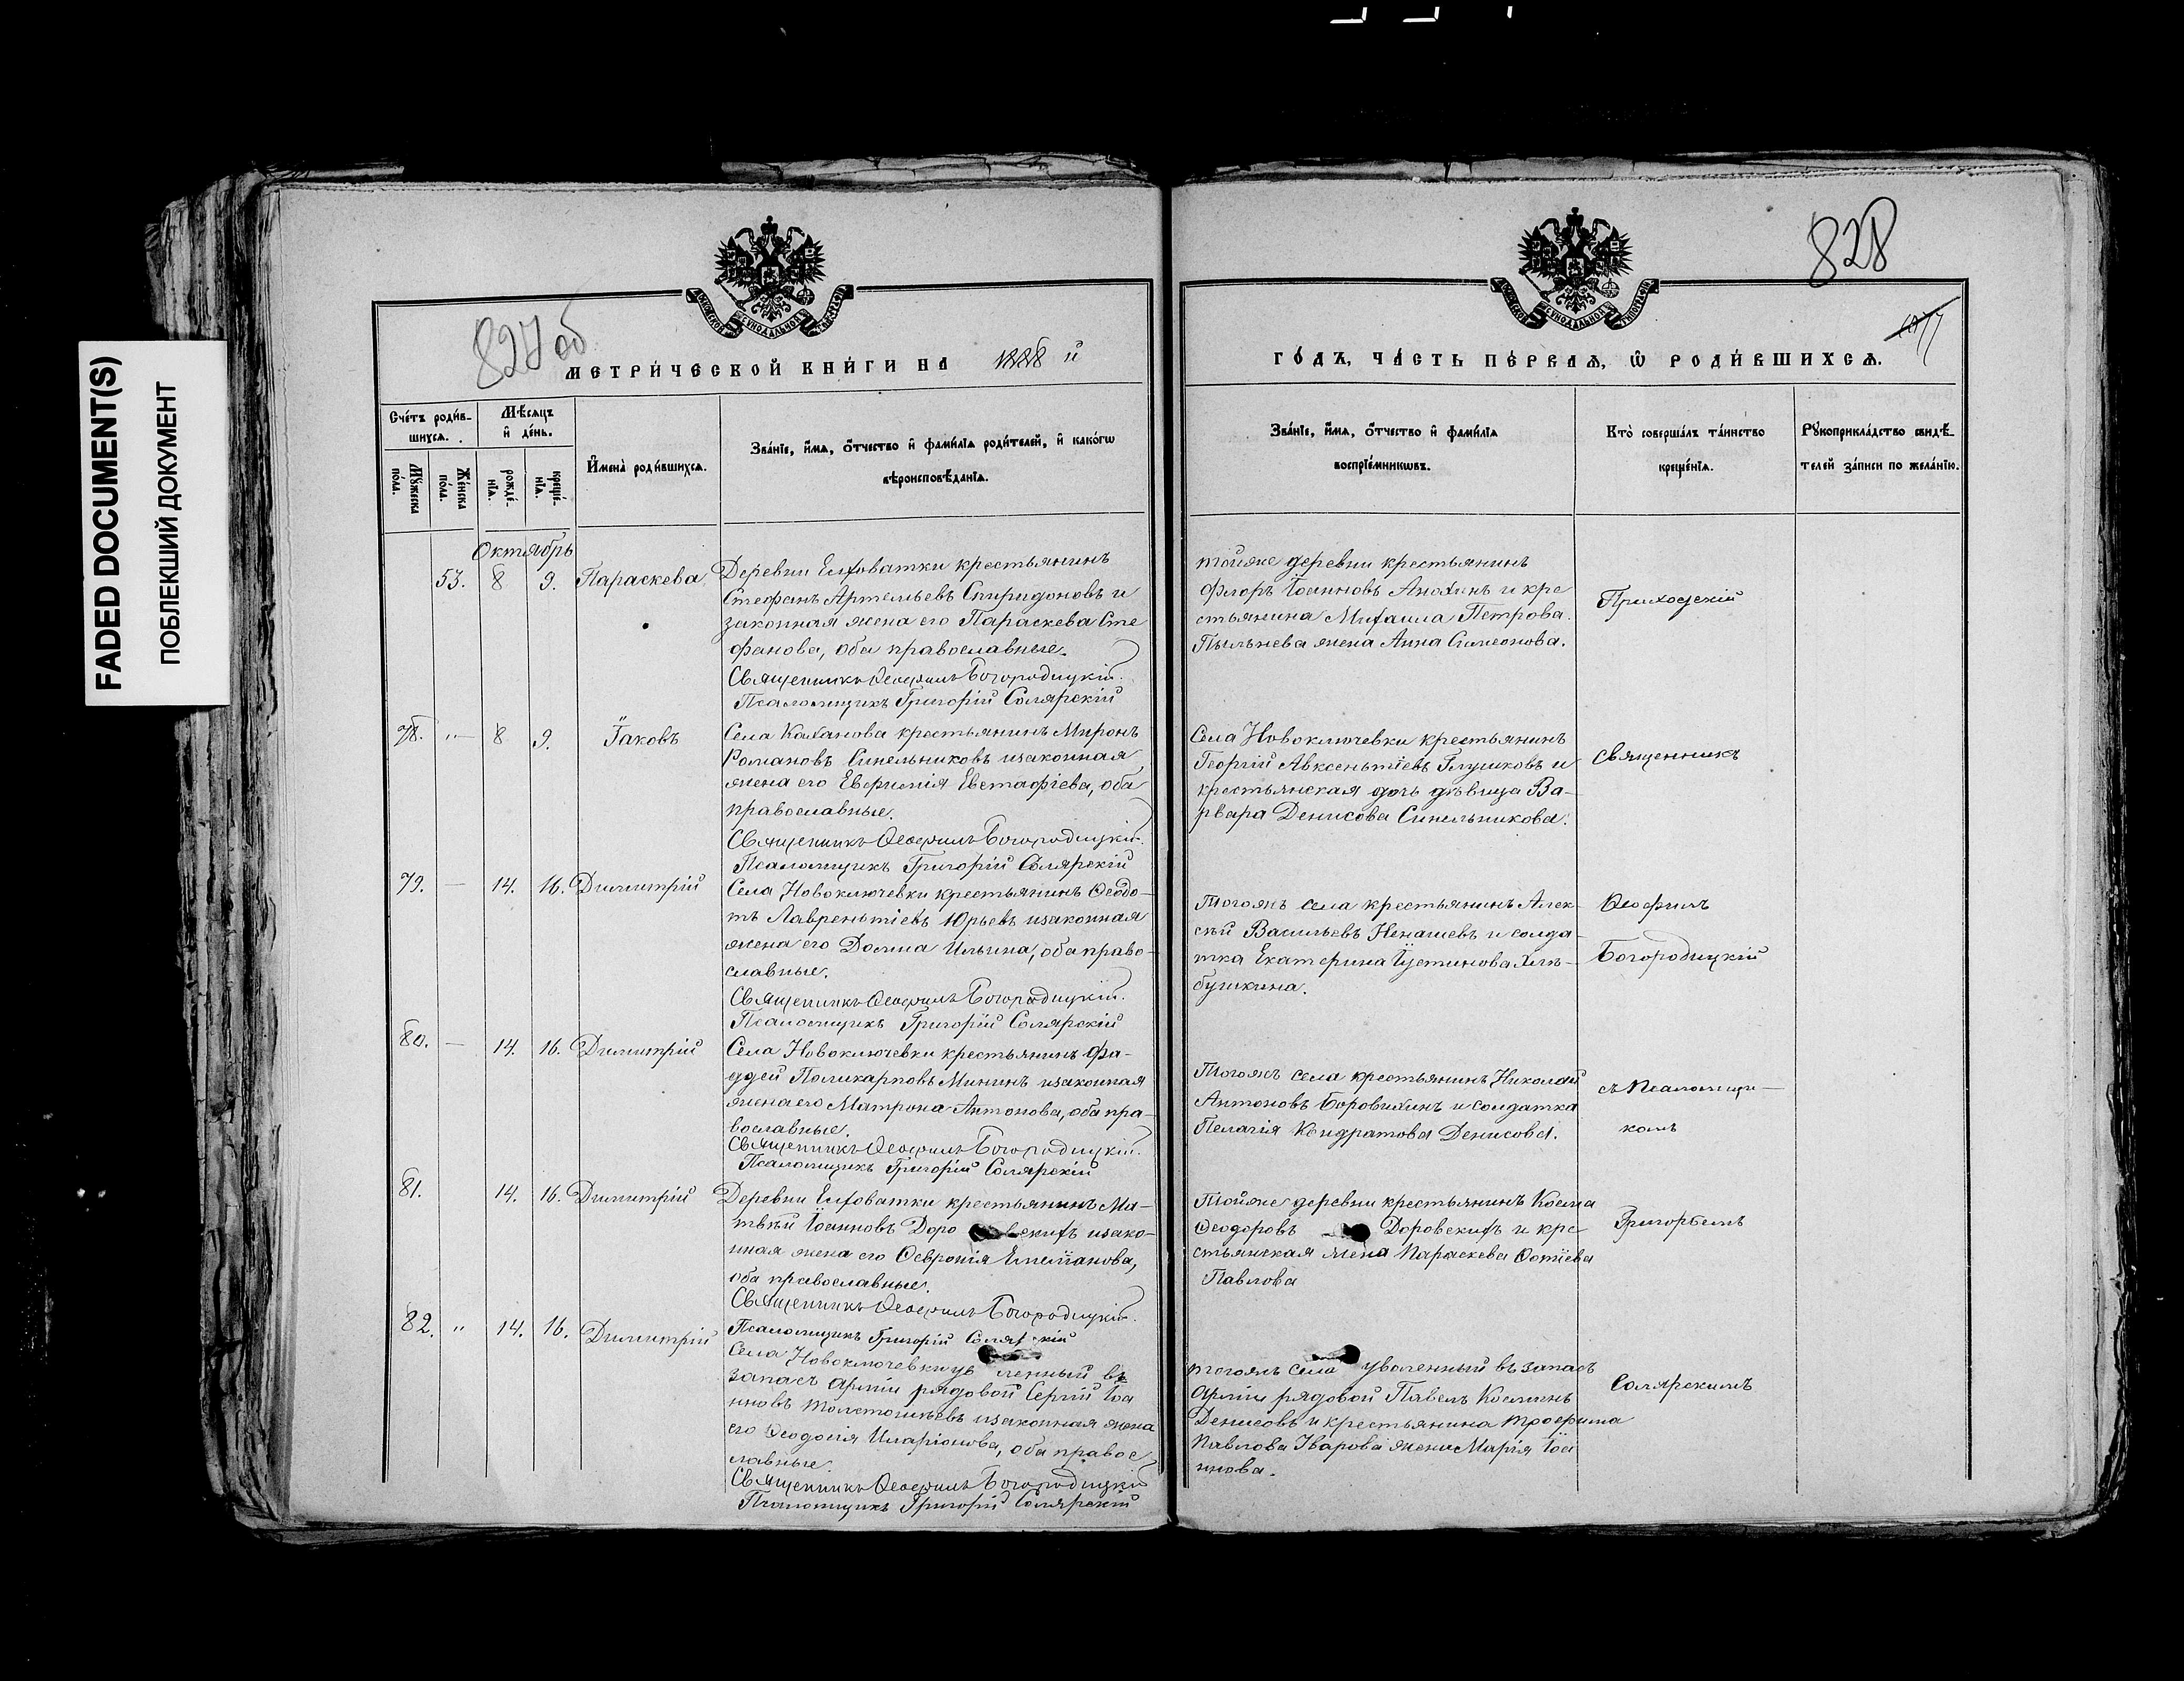 FADED DOCUMENT(S)
ПОБЛЕКШИЙ ДОКУМЕНТ
827 об
МЕТРИ́ЧЕСКОЙ КНИ́ГИ НА 1888 й
Сче́тъ роди́в-
шихся.
Мѣ́сяцъ
и҆ де́нь.
Мꙋ́жеска
по́ла.
Же́нска
по́ла.
рожде́-
нїѧ.
креще́-
нїѧ.
И҆мена̀ роди́вшихсѧ.
Зва́нїе, и҆́мѧ, ѻ҆́тчество и҆ фами́лїѧ роди́телей, и҆ како́гѡ
вѣроисповѣ́данїѧ.
Октябрь
53. 8 9. Параскева
Деревни Елховатки крестьянинъ
Стефанъ Артемьевъ Спиридоновъ и
законная жена его Параскева Сте
фанова, оба православные.
Священникъ Ѳеофилъ Богородицкій.
Псаломщикъ Григорій Солярскій
78. „— 8 9. Іаковъ
Села Каханова крестьянинъ Миронъ
Романовъ Синельниковъ и законная
жена его Евфимія Евстафіева, оба
православные.
Священникъ Ѳеофилъ Богородицкій.
Псаломщикъ Григорій Солярскій
79. — 14. 16. Димитрій
Села Новоключевки крестьянинъ Ѳеодо-
тъ Лаврентіевъ Юрьевъ и законная
жена его Домна Ильина, оба право-
славные.
Священникъ Ѳеофилъ Богородицкій.
Псаломщикъ Григорій Солярскій
80. — 14. 16. Димитрій
Села Новоключевки крестьянинъ Фа-
ддей Поликарповъ Мининъ и законная
жена его Матрона Антонова, оба пра-
вославные.
Священникъ Ѳеофилъ Богородицкій.
Псаломщикъ Григорій Солярскій
81. 14. 16. Димитрій
Деревни Елховатки крестьянинъ Ма-
твѣй Іоанновъ Доро вскихъ и зако-
нная жена его Ѳевронія Емеліанова,
оба православные.
Священникъ Ѳеофилъ Богородицкій.
Псаломщикъ Григорій Соляр кій
82. „ 14. 16. Димитрій
Села Новоключевки ув ленный въ
запасъ арміи рядовой Сергій Іоа
нновъ и законная жена
его Ѳеодосія Иларіонова, оба правос
лавные.
Священникъ Ѳеофилъ Богородицкій
Псаломщикъ Григорій Солярскій
828
ГО́ДЪ, ЧА́СТЬ ПЕ́РВАѦ, Ѡ҆ РОДИ́ВШИХСѦ.
Зва́нїе, и҆́мѧ, ѻ҆́тчество и҆ фами́лїѧ
воспрїе́мникѡвъ.
Кто̀ соверша́лъ та́инство
креще́нїѧ.
Рꙋкоприкла́дство свидѣ́-
телей за́писи по жела́нїю.
тойже деревни крестьянинъ
Флоръ Іоанновъ Анохинъ и кре
стьянина Михаила Петрова
Пыльнева жена Анна Симеонова.
Приходскій
Села Новоключевки крестьянинъ
Георгій Авксеньтіевъ Глушковъ и
крестьянская дочь дѣвица Ва-
рвара Денисова Синельникова.
священникъ
Тогожъ села крестьянинъ Алек-
сѣй Васильевъ Ненашевъ и солда-
тка Екатерина Іустинова Хлѣ-
бушкина.
Ѳеофилъ
Богородицкій
Тогожъ села крестьянинъ Николай
Антоновъ Боровихинъ и солдатка
Пелагія Кондратова Денисова.
съ псаломщи-
комъ
Тойже деревни крестьянинъ Косма
Ѳеодоровъ Доровскихъ и кре-
стьянская жена Параскева Фотіева
Павлова
Григоріемъ
тогожъ села уволенный въ запасъ
арміи рядовой Павелъ Космінъ
Денисовъ и крестьянина Трофима
Павлова Уварова жена Марія Іоа
ннова.
Солярскимъ